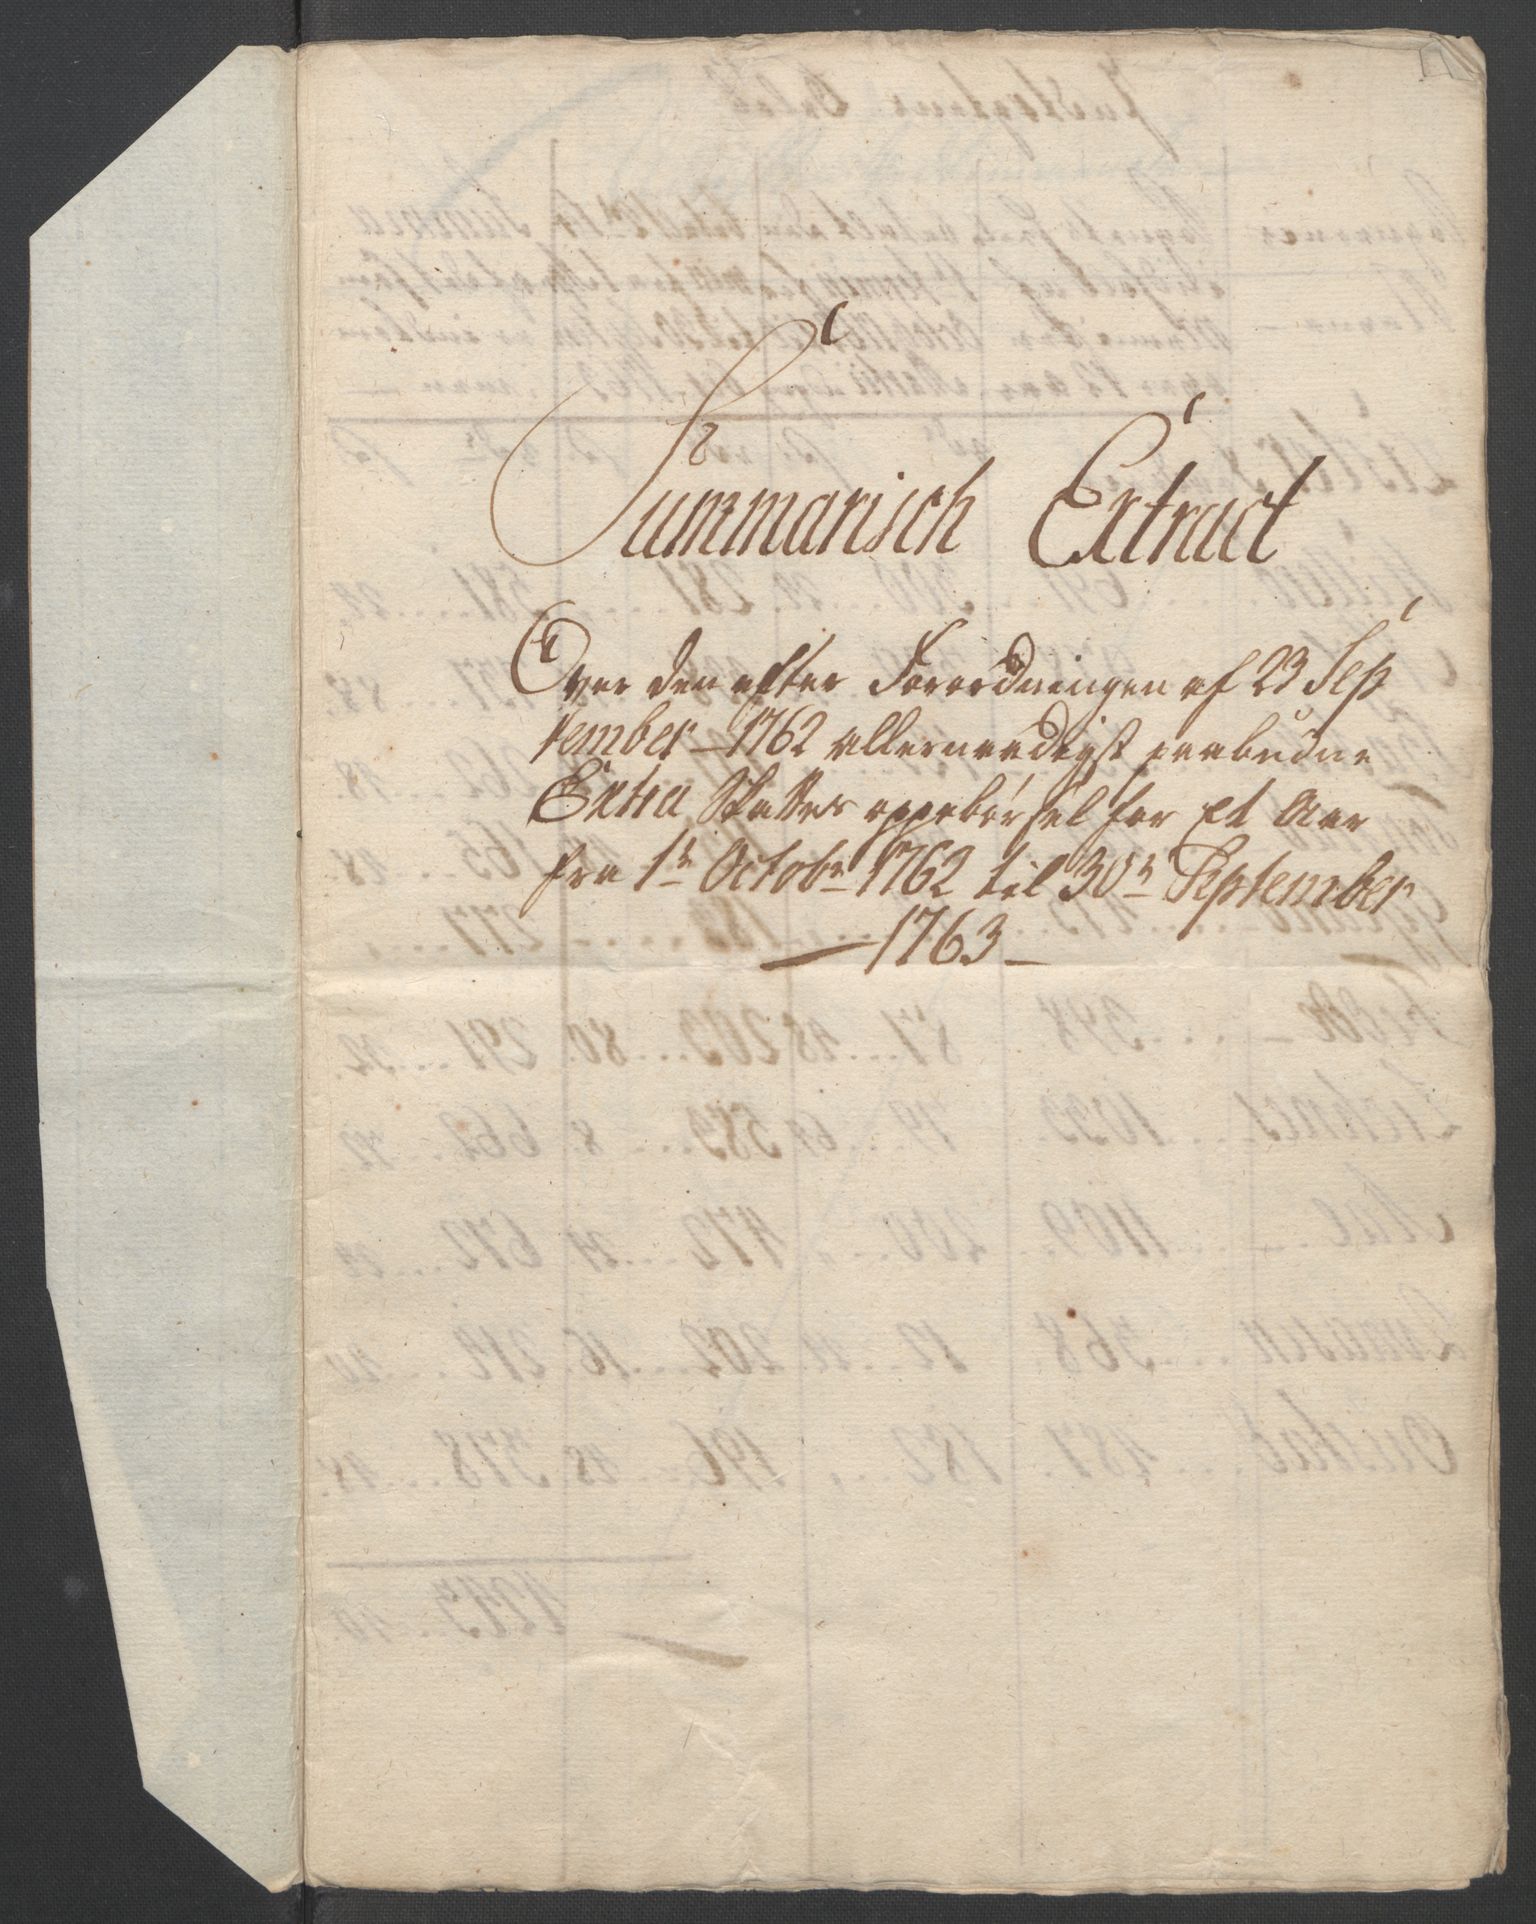 Summarisch Extract
Over den efter Forordningen af 23 Sep
tember 1762 allernaadigst paabudne
Extra Skattes oppebørsel for Et Aar
fra 1te Octobr 1762 til 30te September
1763